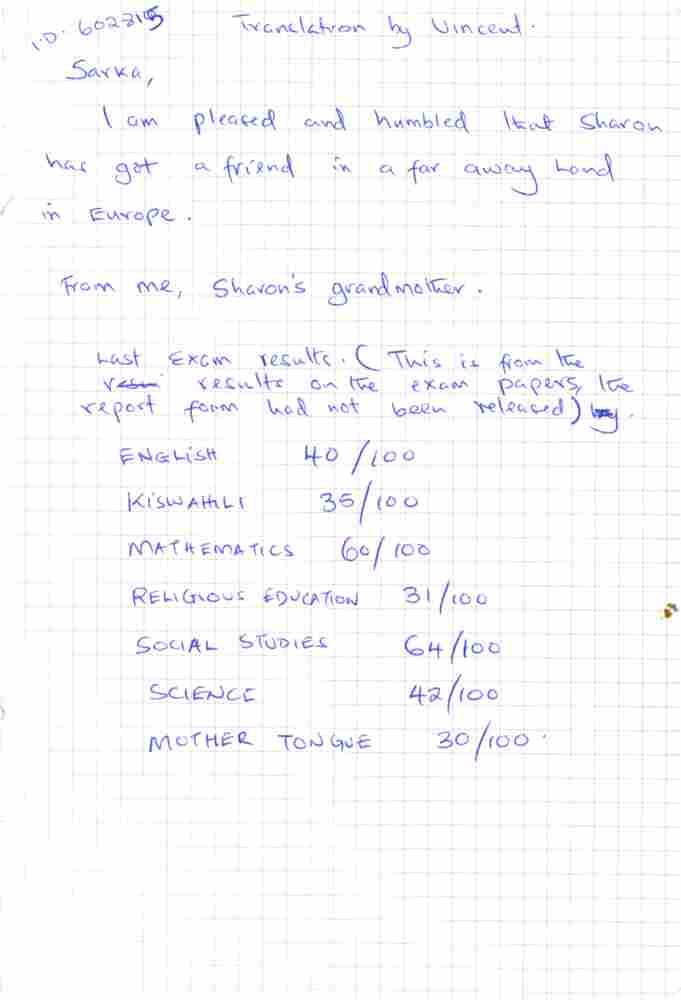 I.D. 602315 Translation by Vincent.
Sarka,
I am pleased and humbled that Sharon
has got a friend in a far away land
in Europe.
From me, Sharon's grandmother.
Last Exam results. (This is from the
results on the exam papers, the
report form had not been released)
ENGLISH 40/100
KISWAHILI 35/100
MATHEMATICS 60/100
RELIGIOUS EDUCATION 31/100
SOCIAL STUDIES 64/100
SCIENCE 42/100
MOTHER TONGUE 30/100.